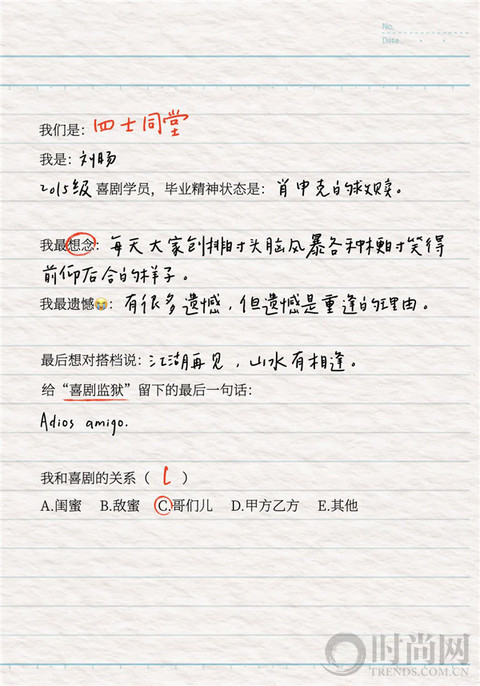 No.
Date
我们是: 四士同堂
我是: 刘旸
2015级喜剧学员，毕业精神状态是: 肖申克的救赎。
我最想念: 每天大家创排时头脑风暴各种梗时笑得
前仰后合的样子。
我最遗憾😭: 有很多遗憾，但遗憾是重逢的理由。
最后想对搭档说: 江湖再见，山水有相逢。
给“喜剧监狱”留下的最后一句话:
Adios amigo.
我和喜剧的关系（ C ）
A.闺蜜 B.敌蜜 C.哥们儿 D.甲方乙方 E.其他
时尚网
TRENDS.COM.CN